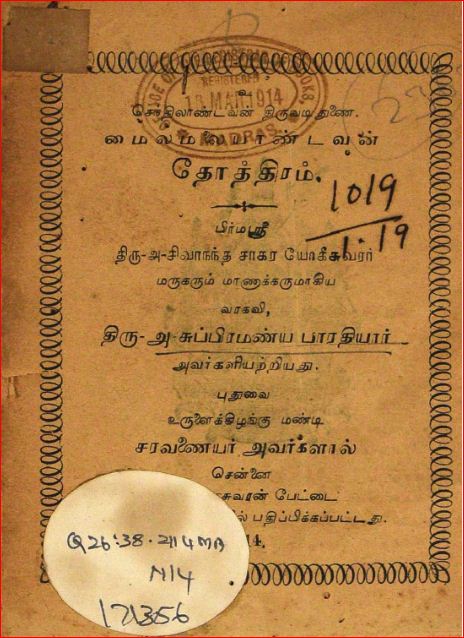 REGISTERED
18 MAR. 1914
MADRAS
திருவடிதுணை.
தோத்திரம்.
1019
1.19
பிர்மஸ்ரீ
திரு-அ-சிவாநந்த சாகர யோகீசுவரர்
மருகரும் மாணாக்கருமாகிய
வரகவி,
திரு-அ-சுப்பிரமண்ய பாரதியார்
அவர்களியற்றியது.
புதுவை
உருளைக்கிழங்கு மண்டி
சரவணையர் அவர்களால்
சென்னை
சுவரன் பேட்டை
பதிப்பிக்கப்பட்டது.
14.
N14
171356